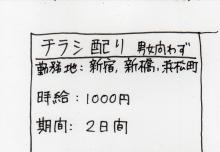 チラシ配り 男女向わず
勤務地：新宿，新橋，浜松町
時給：1000円
期间：2日间